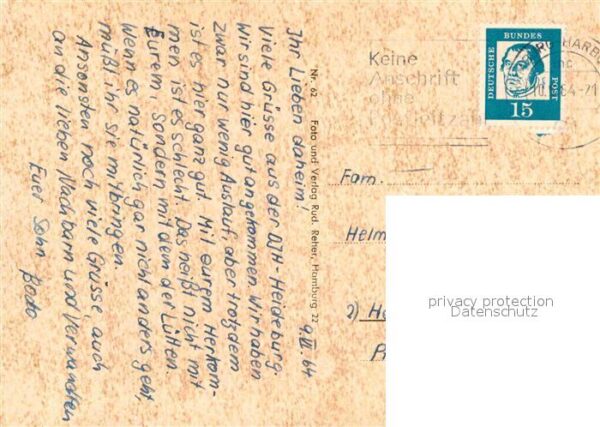 9.III.64
Ihr Lieben daheim!
Viele Grüsse aus der DJH-Heideburg.
Wir sind hier gut angekommen. Wir haben
zwar nur wenig Auslauf, aber trotzdem
ist es hier ganz gut. Mit eurem Herkom-
men ist es schlecht. Das heißt nicht mit
Eurem, Sondern mit dem der Lütten.
Wenn es natürlich gar nicht anders geht,
müßt ihr sie mitbringen.
Ansonsten noch viele Grüsse, auch
an die lieben Nachbarn und Verwandten
Euer Sohn
Bodo
Nr. 62 Foto und Verlag Rud. Reher, Hamburg 22
Keine
Anschrift
ohne
DEUTSCHE BUNDES POST
15
64-71
Fam.
Helm
2) Ha
privacy protection
Datenschutz